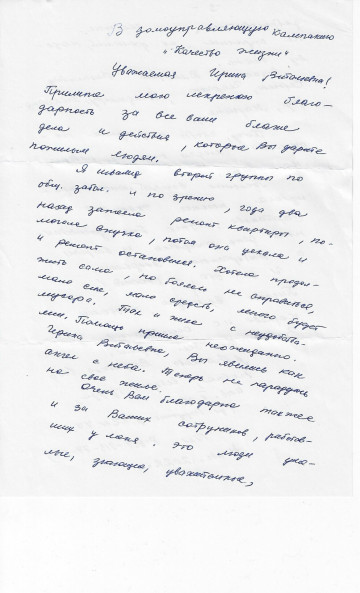 В домоуправляющую кампанию
„Качество жизни"
Уважаемая Ирина Витальевна!
Примите мою искреннюю благо-
дарность за все ваши благие
дела и действия, которые Вы дарите
пожилым людям.
Я инвалид второй группы по
общ. забол. и по зрению, года два
назад затеяла ремонт квартиры, по-
могала внучка, потом она уехала и
и ремонт остановился. Хотела продол-
жить сама, но боялась не справиться,
мало сил, мало средств, много будет
мусора. Так и жила с неудобства-
ми. Помощь пришла неожиданно.
Ирина Витальевна, Вы явились как
ангел с неба. Теперь не нарадуюсь
на свое жилье.
Очень Вам благодарна также
и за Ваших сотрудников, работав-
ших у меня. Это люди уме-
лые, знающие, уважительные,